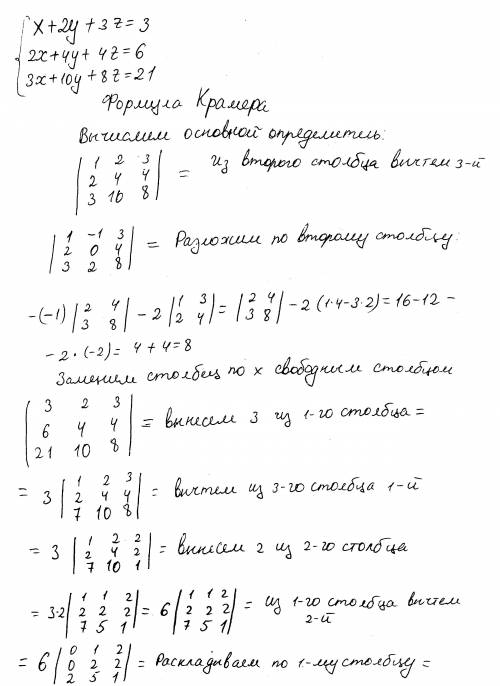 x + 2y + 3z = 3
2x + 4y + 4z = 6
3x + 10y + 8z = 21
Формула Крамера
Вычислим основной определитель:
| 1 2 3 |
| 2 4 4 | = из второго столбца вычтем 3-й
| 3 10 8 |
| 1 -1 3 |
| 2 0 4 | = Разложим по второму столбцу:
| 3 2 8 |
-(-1) | 2 4 ; 3 8 | - 2 | 1 3 ; 2 4 | = | 2 4 ; 3 8 | - 2 (1·4-3·2) = 16-12 -
- 2 · (-2) = 4 + 4 = 8
Заменим столбец по x свободным столбцом
| 3 2 3 |
| 6 4 4 | = вынесем 3 из 1-го столбца =
| 21 10 8 |
= 3 | 1 2 3 ; 2 4 4 ; 7 10 8 | = вычтем из 3-го столбца 1-й
= 3 | 1 2 2 ; 2 4 2 ; 7 10 1 | = вынесем 2 из 2-го столбца
= 3·2 | 1 1 2 ; 2 2 2 ; 7 5 1 | = 6 | 1 1 2 ; 2 2 2 ; 7 5 1 | = из 1-го столбца вычтем 2-й
= 6 | 0 1 2 ; 0 2 2 ; 2 5 1 | = Раскладываем по 1-му столбцу =